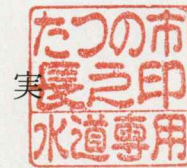 たつの市
実長之印
水道専用